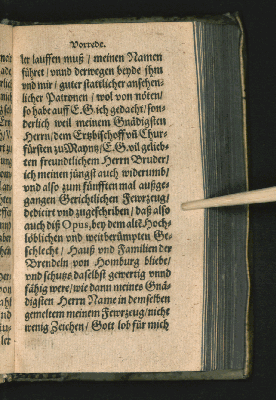 Vorrede.
ler lauffen muß / meinen Namen
führet / vnnd derwegen beyde jhm
vnd mir / guter stattlicher ansehen-
licher Patronen / wol von nöten /
so hab auff E. G. ich gedacht / son-
derlich weil meinem Gnädigsten
Herrn / dem Ertzbischoff vñ Chur-
fürsten zu Mayntz / E. G. vil gelieb-
ten freundtlichem Herrn Bruder /
ich meinen jüngst auch widerumb /
vnd also zum fünfften mal außge-
gangen Gerichtlichen Fewrzeug /
dedicirt vnd zugeschriben / daß also
auch diß Opus, bey dem altē Hoch-
löblichen vnd weitberümpten Ge-
schlecht / Hauß vnd Familien der
Brendeln von Homburg bliebe /
vnd schutz daselbst gewertig vnnd
fähig were / wie dann meines Gnä-
digsten Herrn Name in demselben
gemeltem meinem Fewrzeug / nicht
wenig Zeichen / Gott lob für mich